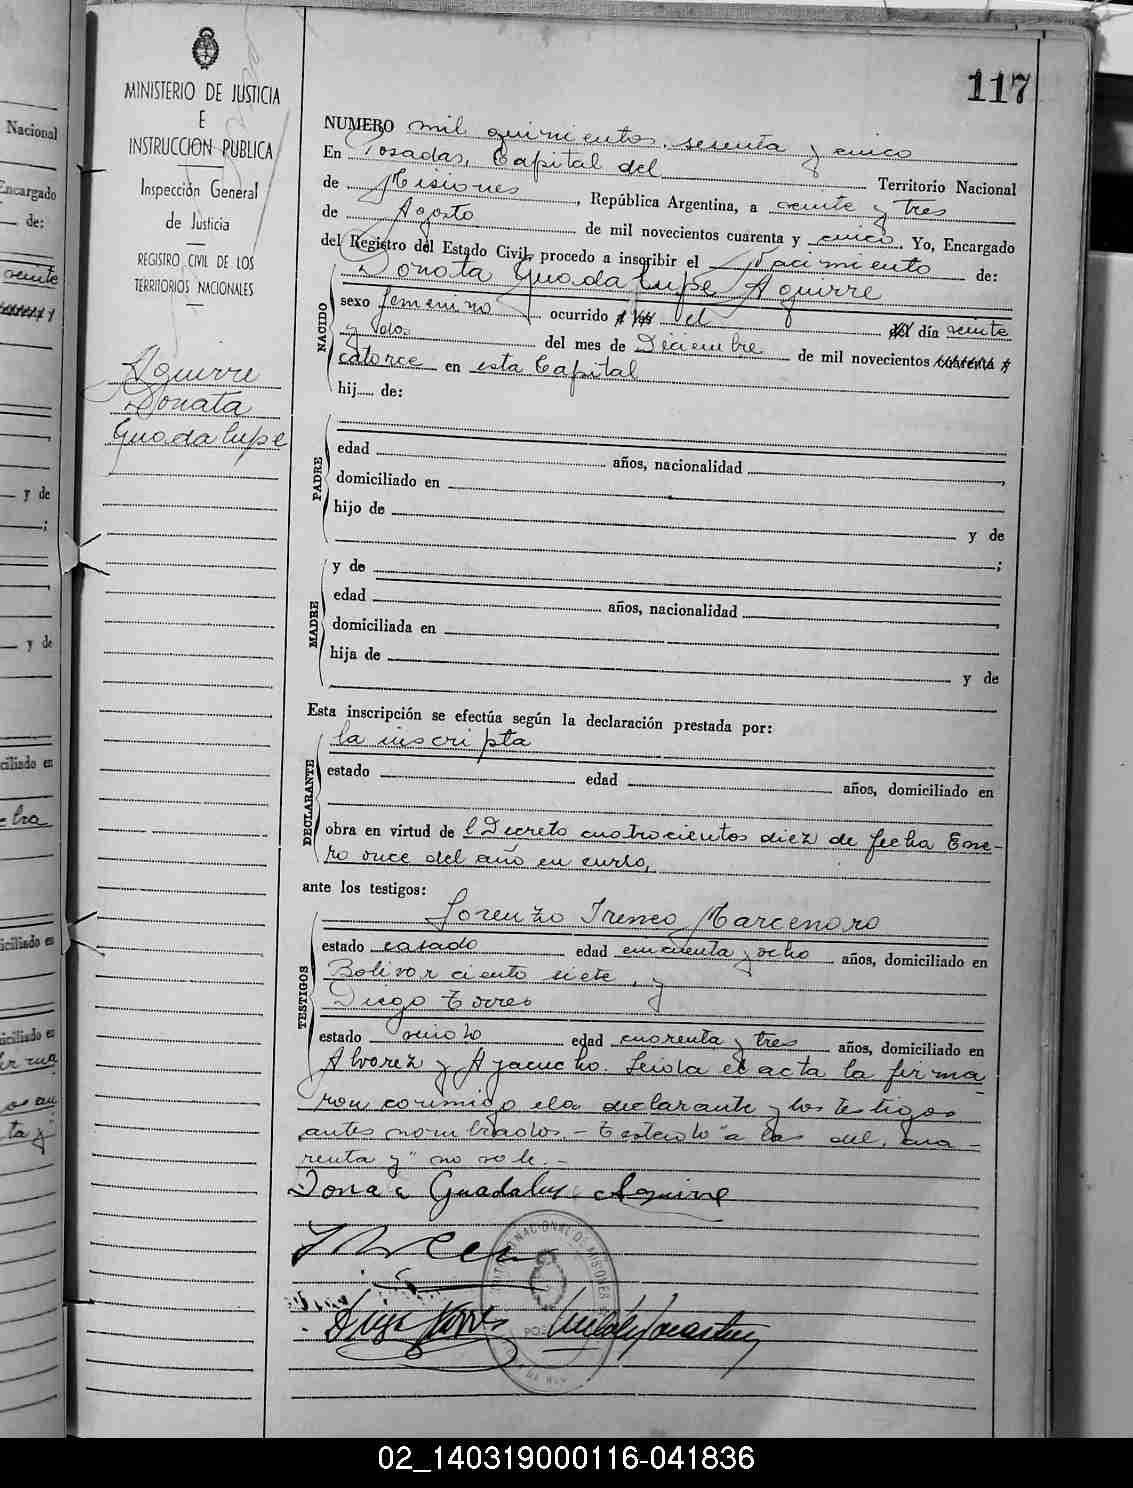 117
MINISTERIO DE JUSTICIA
E
INSTRUCCION PUBLICA
Inspección General
de Justicia
REGISTRO CIVIL DE LOS
TERRITORIOS NACIONALES
Aguirre
Donata
Guadalupe
NUMERO mil quinientos sesenta y cinco
En Posadas, Capital del Territorio Nacional
de Misiones, República Argentina, a veinte y tres
de Agosto de mil novecientos cuarenta y cinco. Yo, Encargado
del Registro del Estado Civil, procedo a inscribir el Nacimiento de:
NACIDO
Donata Guadalupe Aguirre
sexo femenino ocurrido a las el del día veinte
y dos del mes de Diciembre de mil novecientos cuarenta y
catorce en esta Capital
hij de:
PADRE
edad años, nacionalidad
domiciliado en
hijo de y de
;
MADRE
y de
edad años, nacionalidad
domiciliada en
hija de y de
Esta inscripción se efectúa según la declaración prestada por:
DECLARANTE
la inscripta
estado edad años, domiciliado en
obra en virtud de l Decreto cuatrocientos diez de fecha Ene-
ro once del año en curso,
ante los testigos:
TESTIGOS
Lorenzo Ireneo Marcenaro
estado casado edad cincuenta y ocho años, domiciliado en
Bolivar ciento siete, y
Diego Torres
estado viudo edad cuarenta y tres años, domiciliado en
Alvarez y Ayacucho. Leida el acta la firma
ron conmigo la declarante y los testigos
antes nombrados.- Testado "a las del, cua-
renta y" no vale.-
Donata Guadalupe Aguirre
Diego Torres
Nacional
Encargado
de:
veinte
y de
;
y de
ciliado en
iciliado en
iciliado en
02_140319000116-041836